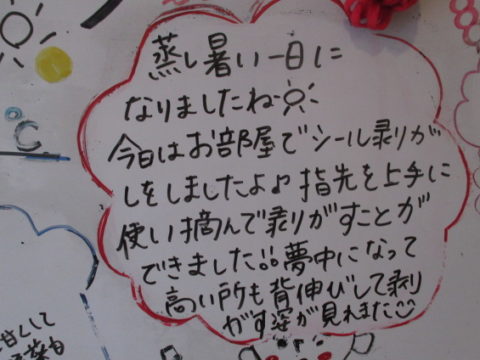 蒸し暑い一日に
なりましたね
今日はお部屋でシール剥りが
しをしましたよ♪指先を上手に
使い摘んで剥りがすことが
できました!!夢中になって
高い所も背伸びして剥り
がす姿が見れました
℃
甘くして